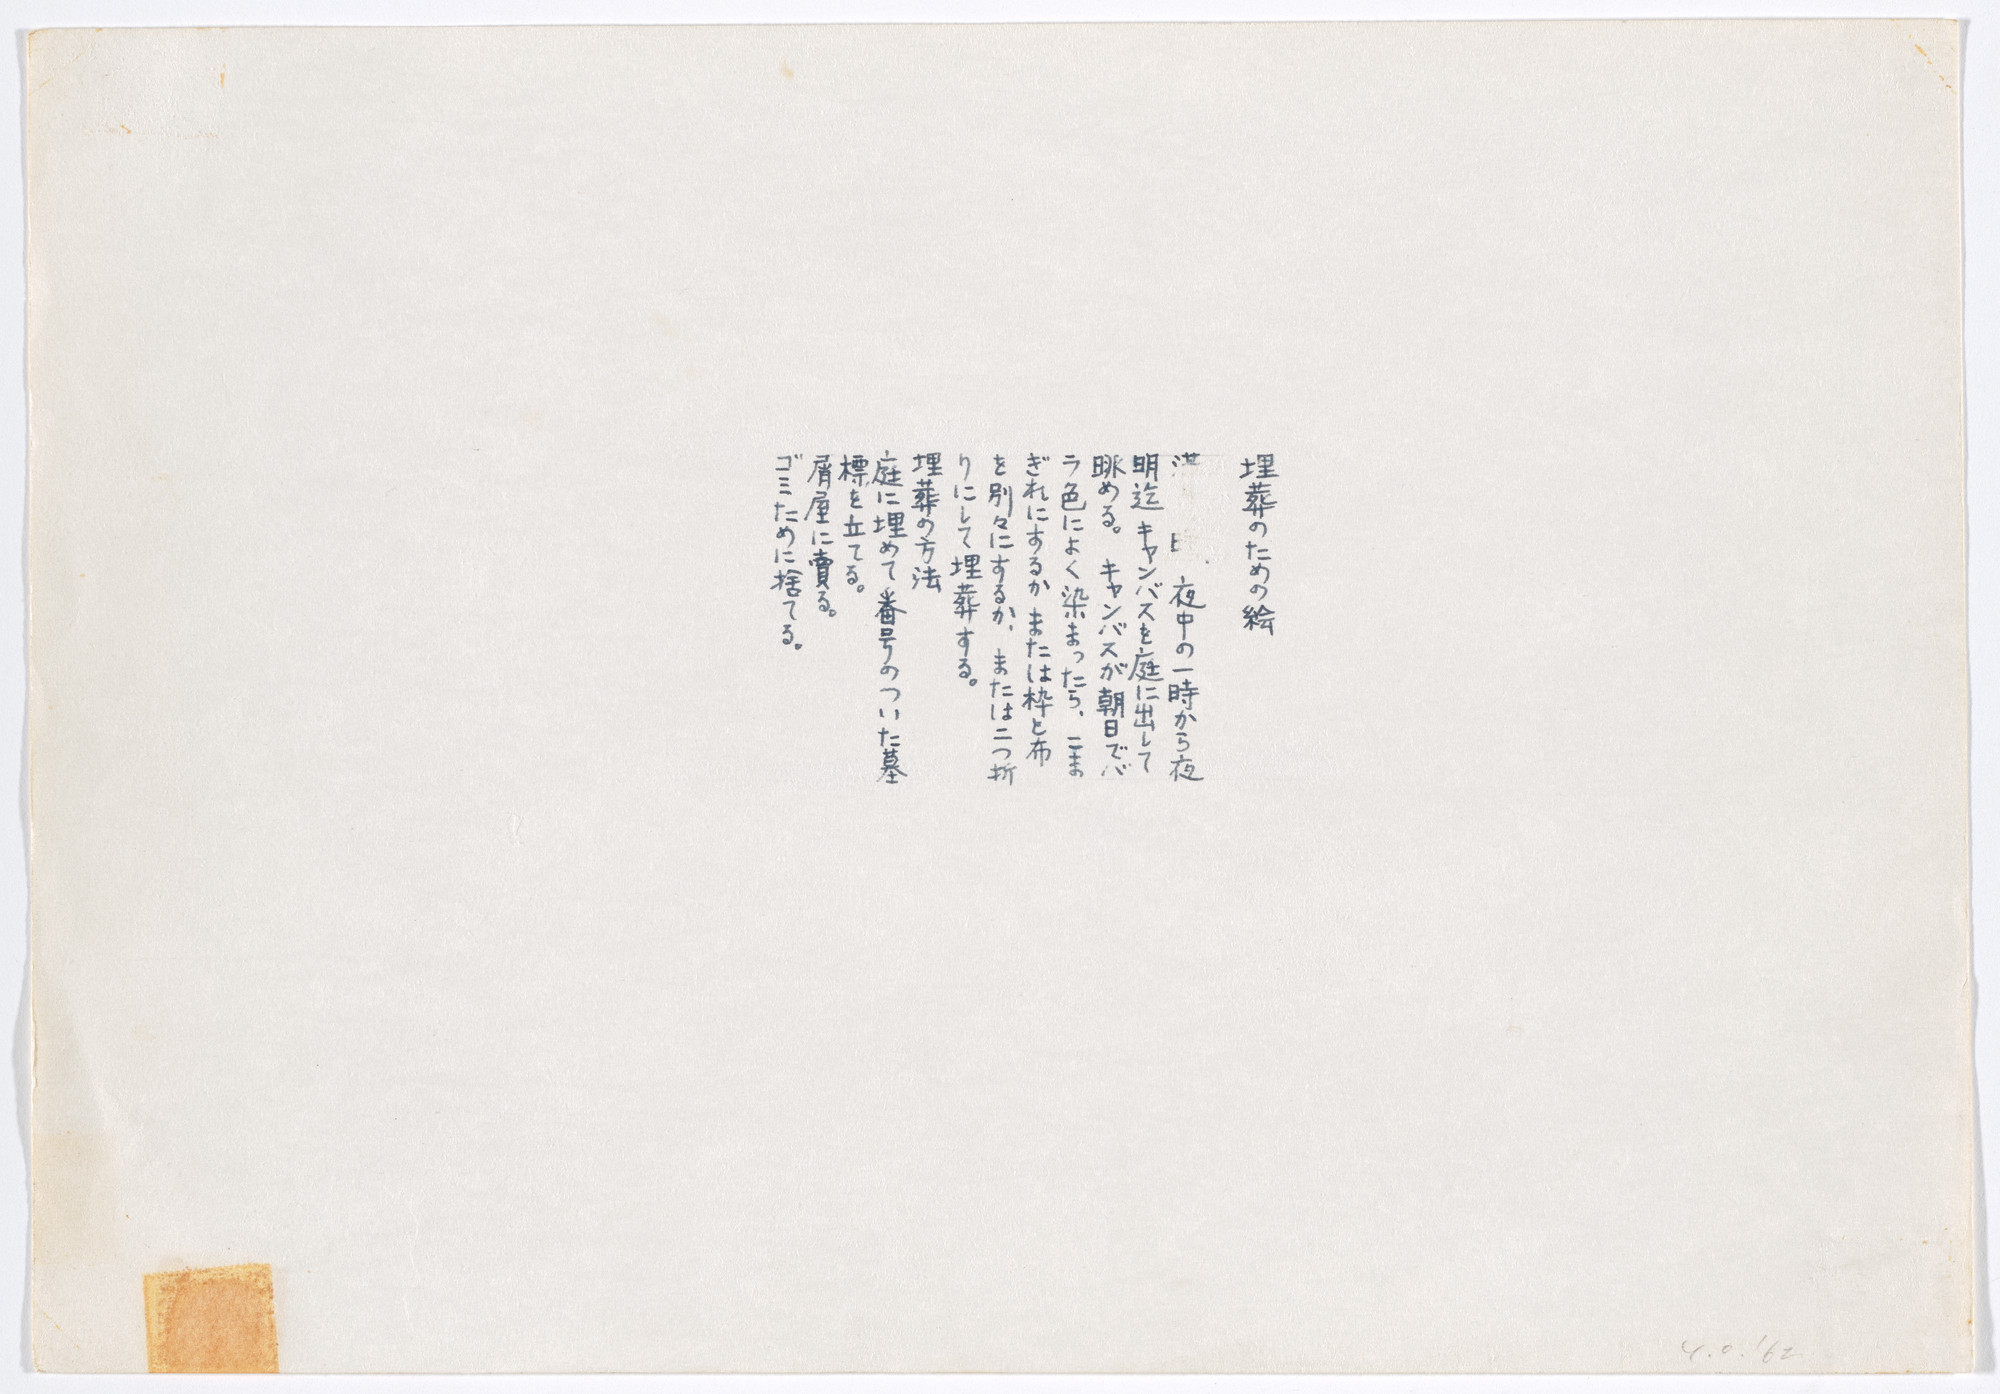 埋葬のための絵
満　　夜中の一時から夜
明迄キャンバスを庭に出して
眺める。キャンバスが朝日でバ
ラ色によく染まったら、こま
ぎれにするかまたは枠と布
を別々にするか、または二つ折
りにして埋葬する。
埋葬の方法
庭に埋めて番号のついた墓
標を立てる。
屑屋に賣る。
ゴミために捨てる。
Y.O. '62